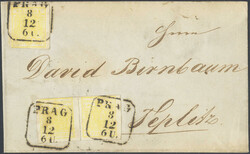 PRAG
8
12
6U.
Herrn
David Birnbaum
PRAG
8
12
6U.
PRAG
8
12
6U.
Teplitz